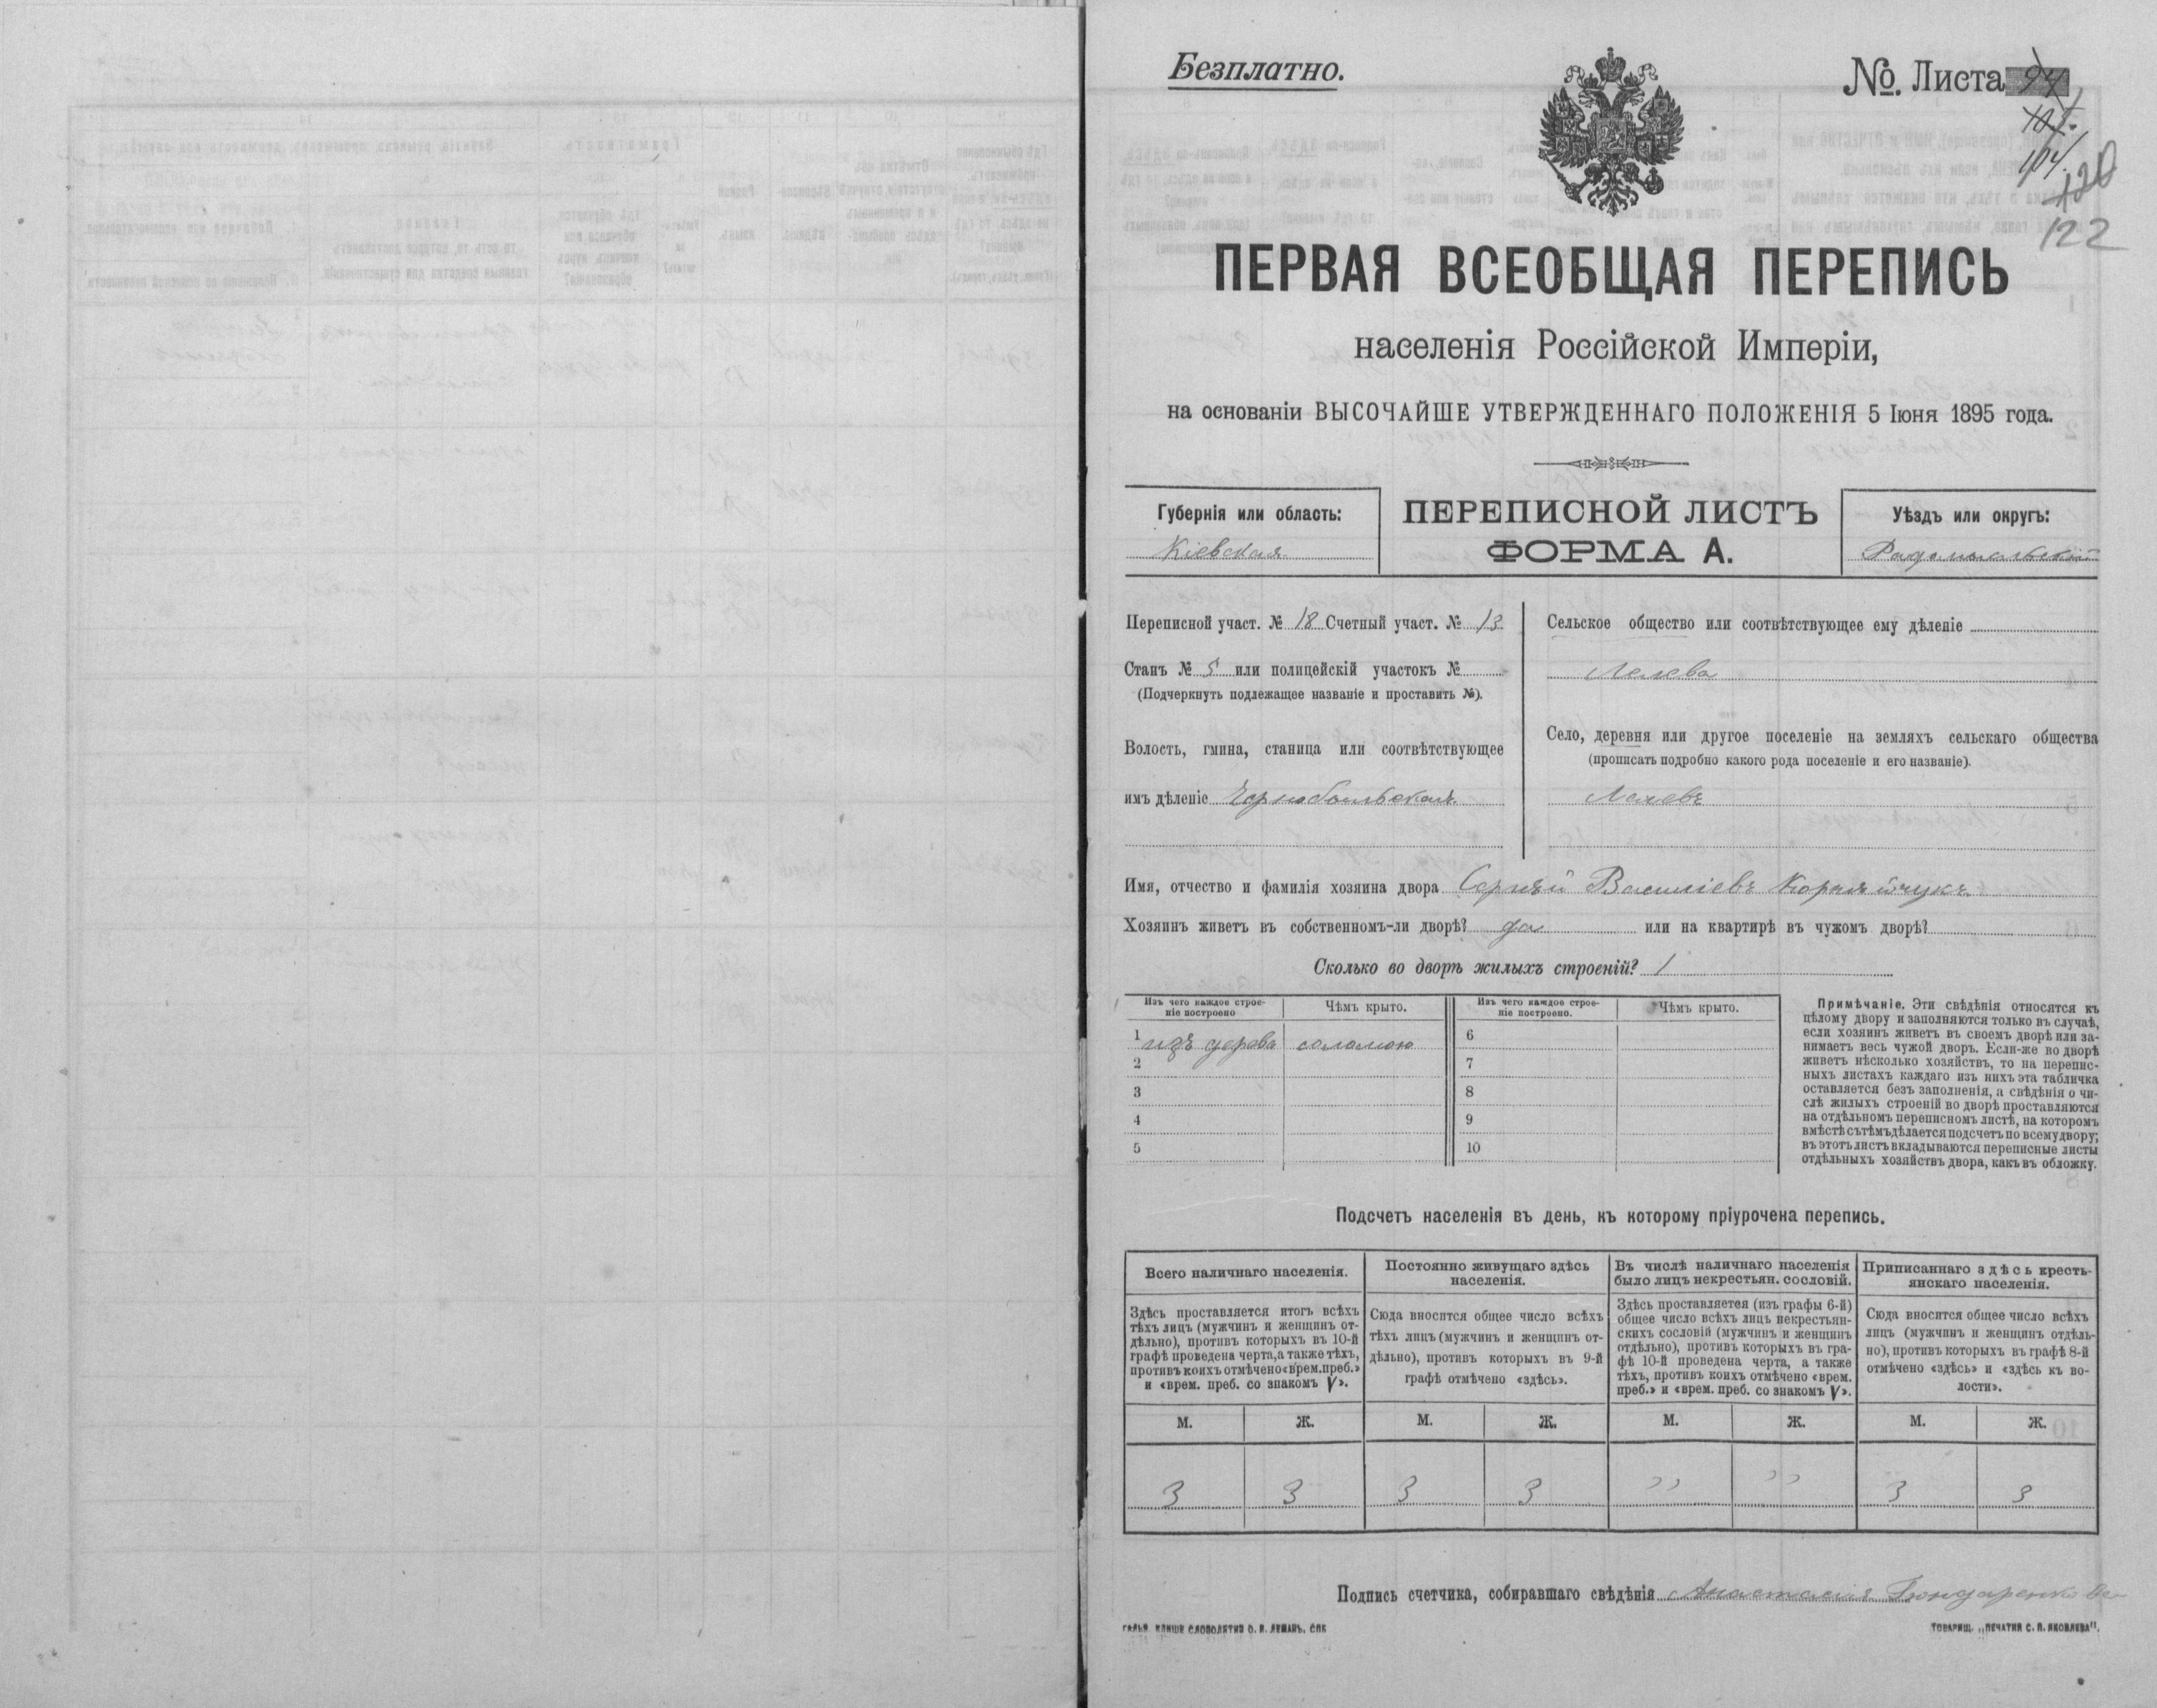 Безплатно.
№ Листа 94
101.
104.
120
122
ПЕРВАЯ ВСЕОБЩАЯ ПЕРЕПИСЬ
населенія Россійской Имперіи,
на основаніи ВЫСОЧАЙШЕ УТВЕРЖДЕННАГО ПОЛОЖЕНІЯ 5 Іюня 1895 года.
Губернія или область:
Кіевская
ПЕРЕПИСНОЙ ЛИСТЪ
ФОРМА А.
Уѣздъ или округъ:
Радомысльскій
Переписной участ. № 18 Счетный участ. № 13
Станъ № 5 или полицейскій участокъ №
(Подчеркнуть подлежащее названіе и проставить №).
Волость, гмина, станица или соотвѣтствующее
имъ дѣленіе Чернобыльская
Сельское общество или соотвѣтствующее ему дѣленіе
Лелева
Село, деревня или другое поселеніе на земляхъ сельскаго общества
(прописать подробно какого рода поселеніе и его названіе).
Лелевъ
Имя, отчество и фамилія хозяина двора Сергѣй Василіевъ Корнейчукъ
Хозяинъ живетъ въ собственномъ-ли дворѣ? да или на квартирѣ въ чужомъ дворѣ?
Сколько во дворѣ жилыхъ строеній? 1
Изъ чего каждое строе-
ніе построено
Чѣмъ крыто.
1 изъ дерева соломою
2
3
4
5
Изъ чего каждое строе-
ніе построено.
Чѣмъ крыто.
6
7
8
9
10
Примѣчаніе. Эти свѣдѣнія относятся къ
цѣлому двору и заполняются только въ случаѣ,
если хозяинъ живетъ въ своемъ дворѣ или за-
нимаетъ весь чужой дворъ. Если-же во дворѣ
живетъ нѣсколько хозяйствъ, то на перепис-
ныхъ листахъ каждаго изъ нихъ эта табличка
оставляется безъ заполненія, а свѣдѣнія о чи-
слѣ жилыхъ строеній во дворѣ проставляются
на отдѣльномъ переписномъ листѣ, на которомъ
вмѣстѣ съ тѣмъ дѣлается подсчетъ по всему двору;
въ этотъ листъ вкладываются переписные листы
отдѣльныхъ хозяйствъ двора, какъ въ обложку.
Подсчетъ населенія въ день, къ которому пріурочена перепись.
Всего наличнаго населенія.
Здѣсь проставляется итогъ всѣхъ
тѣхъ лицъ (мужчинъ и женщинъ от-
дѣльно), противъ которыхъ въ 10-й
графѣ проведена черта, а также тѣхъ,
противъ коихъ отмѣчено «врем. преб.»
и «врем. преб. со знакомъ V».
Постоянно живущаго здѣсь
населенія.
Сюда вносится общее число всѣхъ
тѣхъ лицъ (мужчинъ и женщинъ от-
дѣльно), противъ которыхъ въ 9-й
графѣ отмѣчено «здѣсь».
Въ числѣ наличнаго населенія
было лицъ некрестьян. сословій.
Здѣсь проставляется (изъ графы 6-й)
общее число всѣхъ лицъ некрестьян-
скихъ сословій (мужчинъ и женщинъ
отдѣльно), противъ которыхъ въ гра-
фѣ 10-й проведена черта, а также
тѣхъ, противъ коихъ отмѣчено «врем.
преб.» и «врем. преб. со знакомъ V».
Приписаннаго здѣсь кресть-
янскаго населенія.
Сюда вносится общее число всѣхъ
лицъ (мужчинъ и женщинъ отдѣль-
но), противъ которыхъ въ графѣ 8-й
отмѣчено «здѣсь» и «здѣсь къ во-
лости».
М. Ж. М. Ж. М. Ж. М. Ж.
3 3 3 3 " " 3 3
Подпись счетчика, собиравшаго свѣдѣнія Анастасія Бондаренко
ГАЛЬВ. КЛИШЕ СЛОВОЛИТНИ О. И. ЛЕМАНЪ, СПБ
ТОВАРИЩ. „ПЕЧАТНЯ С. П. ЯКОВЛЕВА".